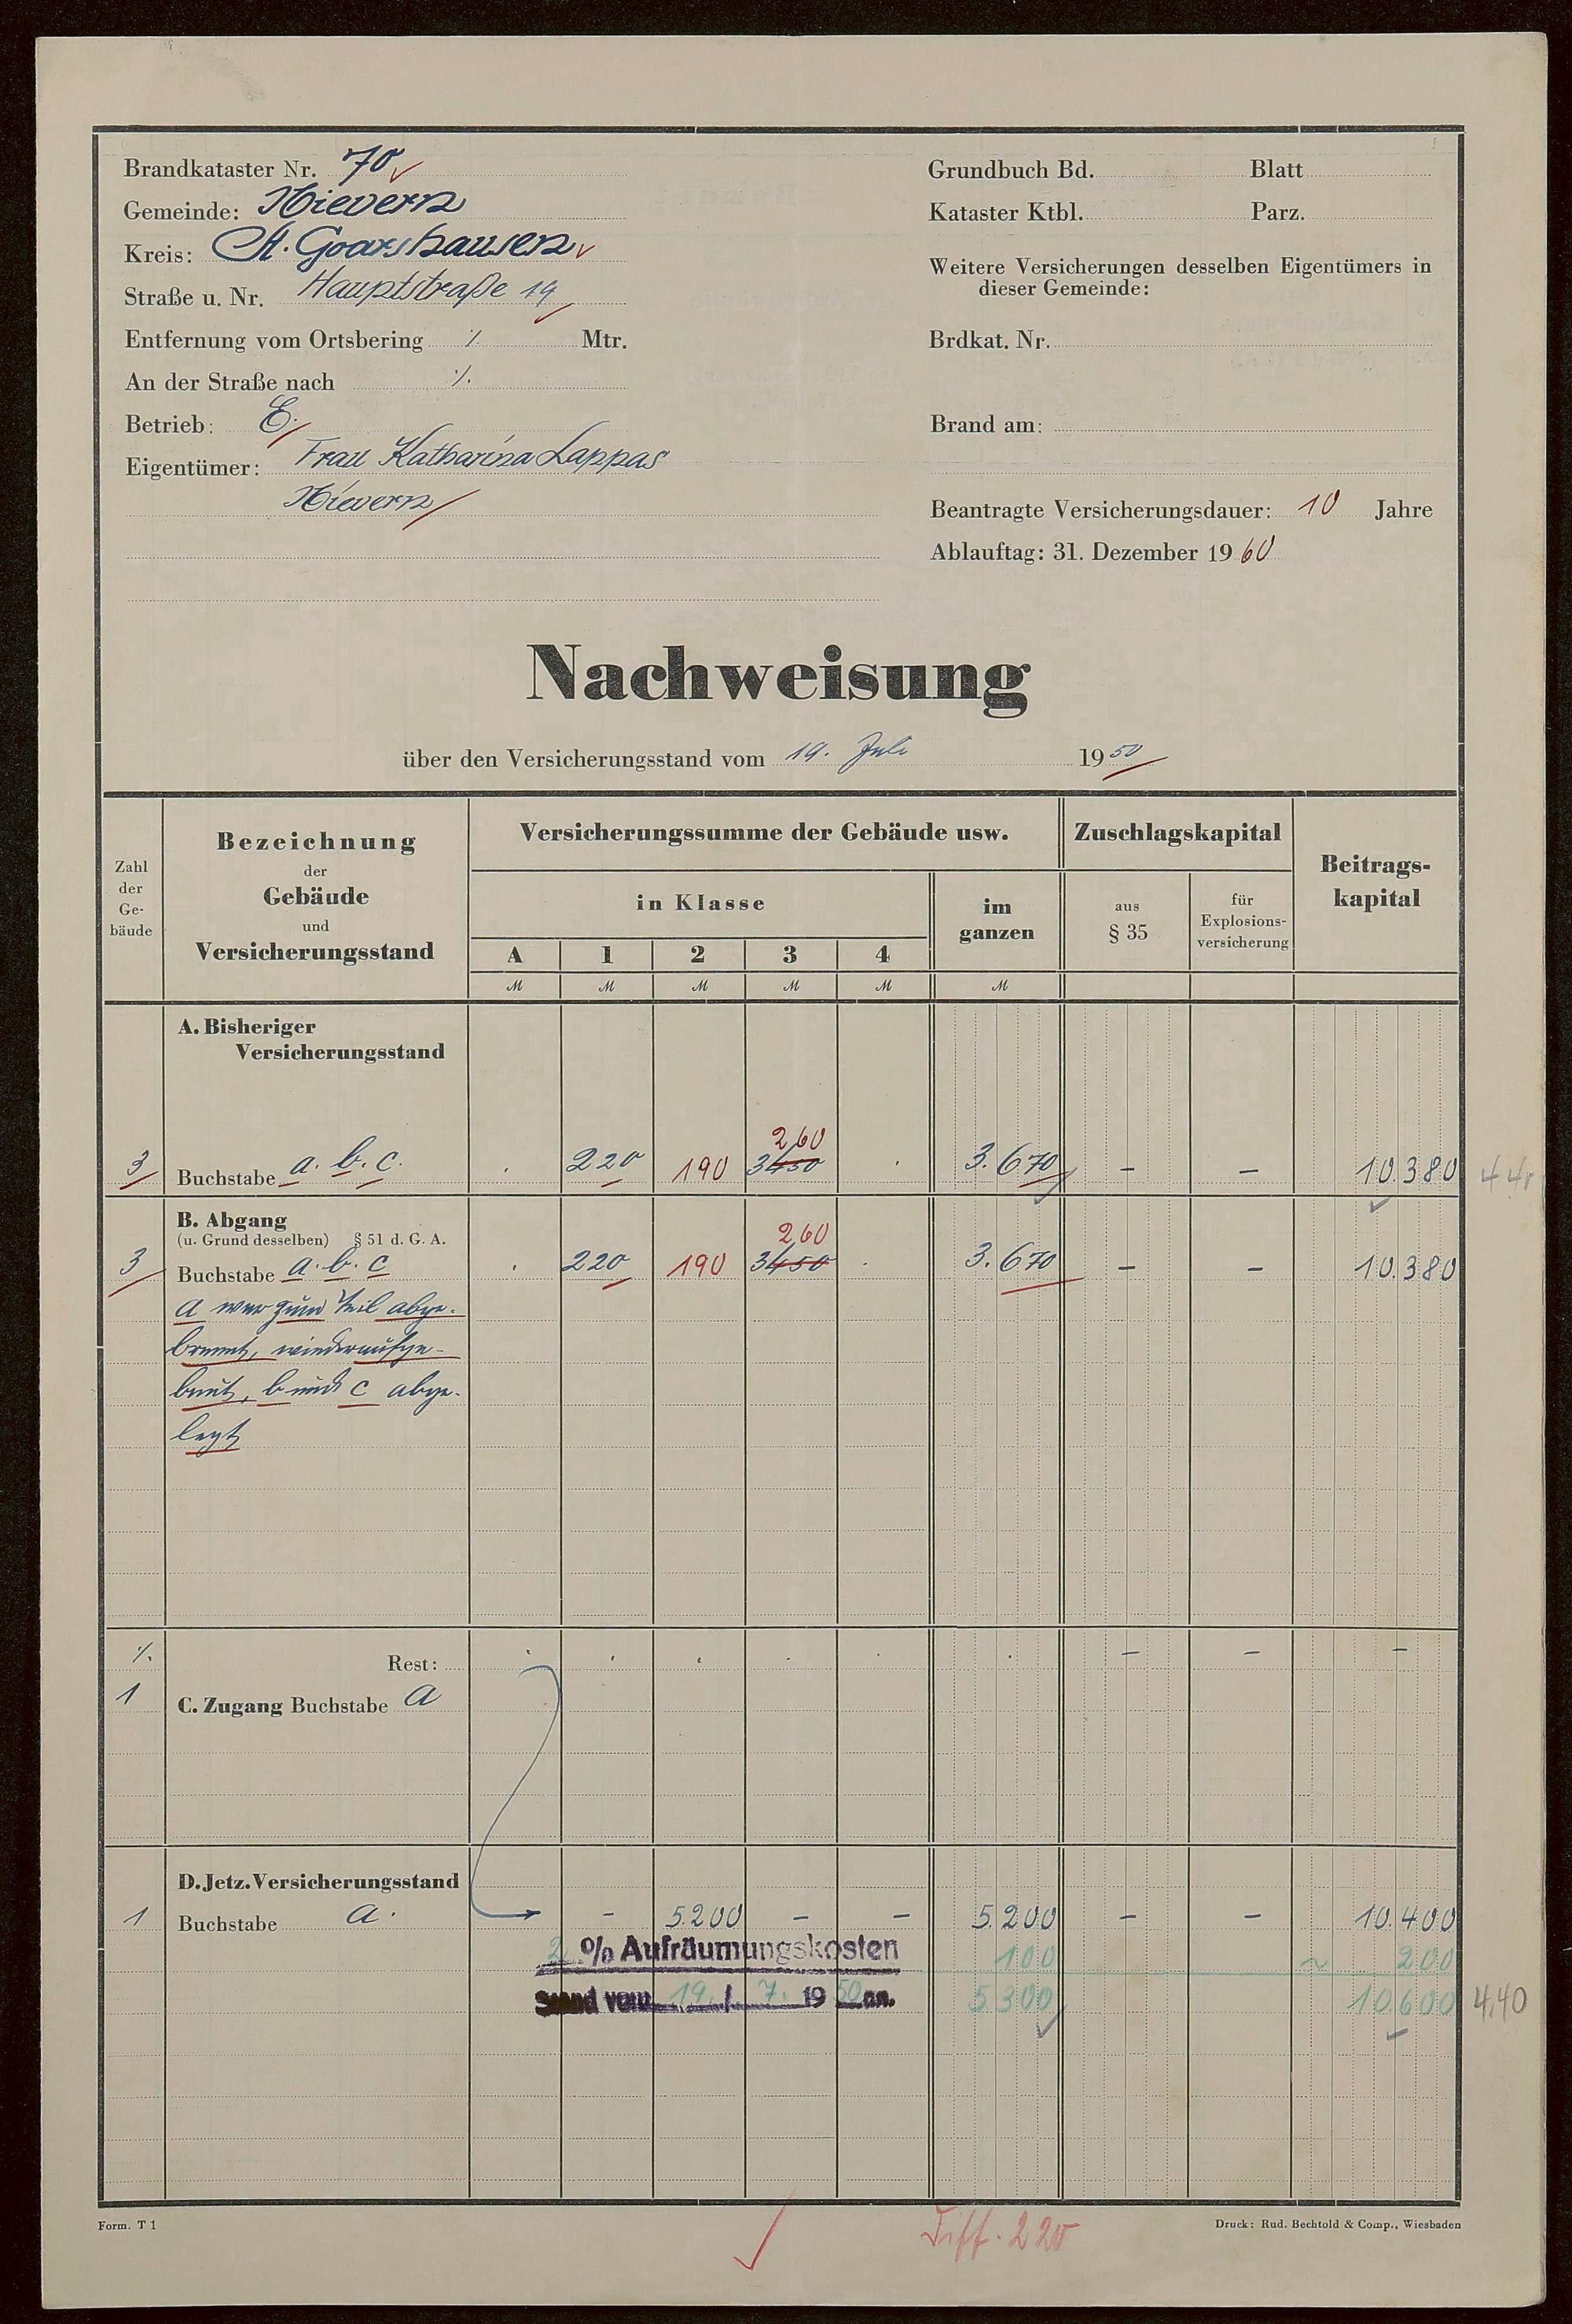 Brandkataster Nr. 70
Gemeinde: Nievern
Kreis: St. Goarshausen
Straße u. Nr. Hauptstraße 19
Entfernung vom Ortsbering ·/. Mtr.
An der Straße nach ·/.
Betrieb: E.
Eigentümer: Frau Katharina Lappas
Nievern
Grundbuch Bd. Blatt
Kataster Ktbl. Parz.
Weitere Versicherungen desselben Eigentümers in
dieser Gemeinde:
Brdkat. Nr.
Brand am:
Beantragte Versicherungsdauer: 10 Jahre
Ablauftag: 31. Dezember 1960
Nachweisung
über den Versicherungsstand vom 19. Juli 1950
Zahl der Ge-bäude
Bezeichnung
der
Gebäude
und
Versicherungsstand
Versicherungssumme der Gebäude usw.
in Klasse
A 1 2 3 4
im ganzen
M M M M M M
Zuschlagskapital
aus § 35
für Explosions-versicherung
Beitrags-kapital
A. Bisheriger
Versicherungsstand
260
3 Buchstabe a. b. c. . 220 190 3450 . 3.670 – – 10.380
B. Abgang
(u. Grund desselben) § 51 d. G. A.
260
3 Buchstabe a. b. c . 220 190 3450 . 3.670 – – 10.380
a war zum Teil abge-
brannt, wiederaufge-
baut, b und c abge-
legt
·/. Rest: . . . . . . – – –
1 C. Zugang Buchstabe a
D. Jetz. Versicherungsstand
1 Buchstabe a. – 5.200 – – 5.200 – – 10.400
2 % Aufräumungskosten 100 200
Stand vom 19. / 7. 19 50 an. 5.300 10.600 4,40
Diff. 220
Form. T 1
Druck: Rud. Bechtold & Comp., Wiesbaden